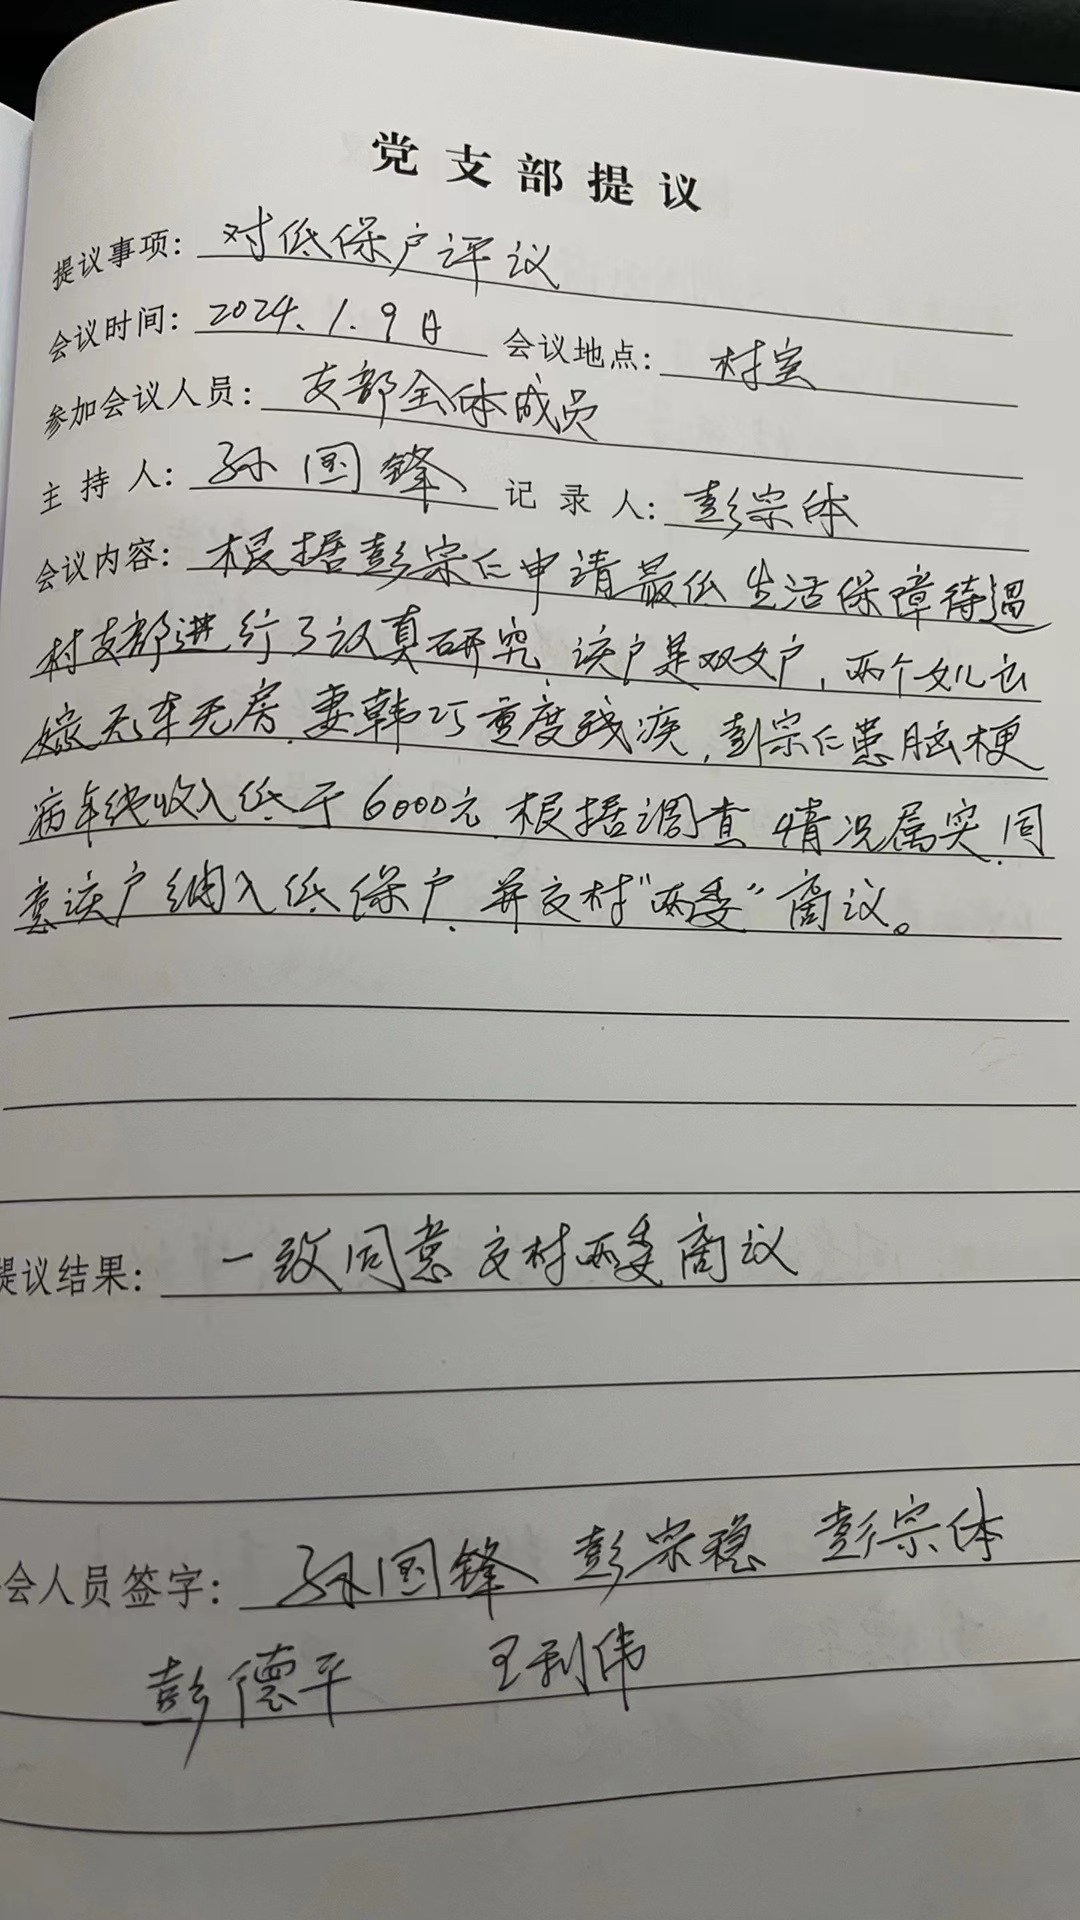 党支部提议
提议事项：对低保户评议
会议时间：2024.1.9日 会议地点：村室
参加会议人员：支部全体成员
主持人：孙国锋 记录人：彭宗体
会议内容：根据彭宗仁申请最低生活保障待遇
村支部进行了认真研究，该户是双女户，两个女儿已
嫁无车无房，妻韩巧重度残疾，彭宗仁患脑梗
病年纯收入低于6000元，根据调查情况属实，同
意该户纳入低保户，并交村“两委”商议。
提议结果：一致同意交村两委商议
会人员签字：孙国锋 彭宗稳 彭宗体
彭德平 王利伟